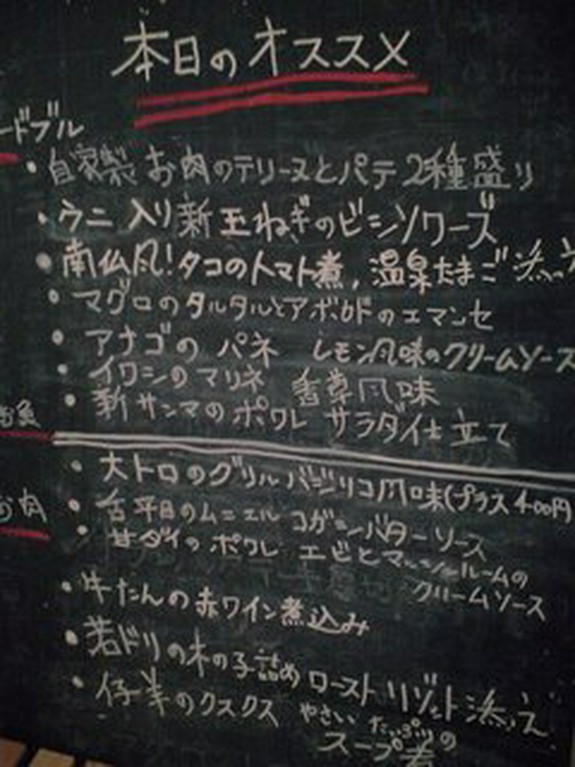 本日のオススメ
ードブル
・自家製 お肉のテリーヌとパテ 2種盛り
・ウニ入り新玉ねぎのビシソワーズ
・南仏風!タコのトマト煮,温泉たまご添え
・マグロのタルタルとアボカドのエマンセ
・アナゴの パネ レモン風味のクリームソース
・イワシのマリネ 香草風味
・新サンマのポワレ サラダ仕立て
お魚
・大トロのグリル バジリコ風味(プラス400円
・舌平目のムニエル コガシバターソース
・甘ダイのポワレ エビとマッシュルームの
クリームソース
お肉
・牛たんの赤ワイン煮込み
・若ドリの木の子詰め ロースト リゾット添え
・仔羊のクスクス やさい たっぷりの
スープ煮